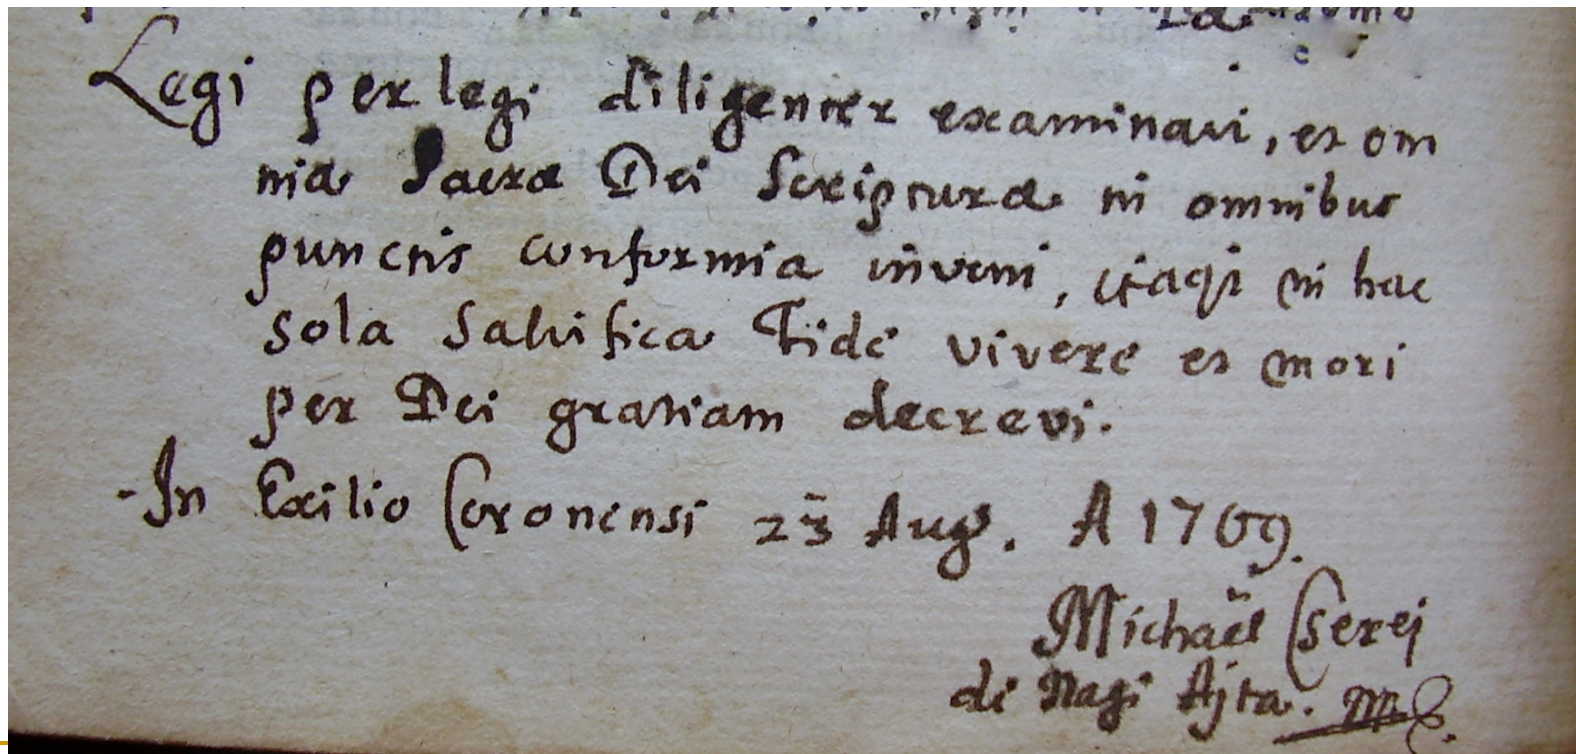 Legi perlegi diligenter examinavi, et om
nia Sacra Dei Scriptura in omnibus
punctis conformia inveni, itaqe in hac
sola Salvifica Fide vivere et mori
per Dei gratiam decrevi.
In Exilio Coronensi 23 Aug. A 1709.
Michaël Cserej
de Nagi Ajta. mp.